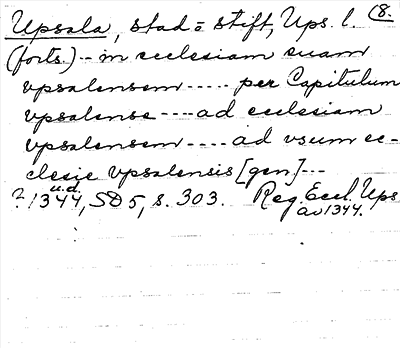 Upsala, stad = stift, Ups. l. (8.
(forts.) -- in ecclesiam suam
vpsalensem ----- per Capitulum
vpsalense ---- ad ecclesiam
vpsalensem ---- ad vsum ec-
clesie vpsalensis [gen] ---
? 1344, u.d. SD 5, s. 303. Reg. Eccl. Ups
av 1344.